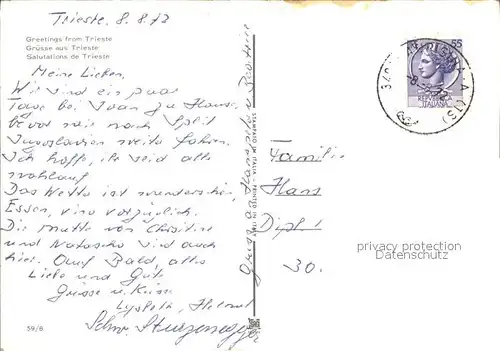 Trieste. 8. 8. 72
Greetings from Trieste
Grüsse aus Trieste
Salutations de Trieste
Meine Lieben,
Wir sind ein paar
Tage bei Ivan zu Hause
bevor wir nach Split
Jugoslavien weiter fahren.
Ich hoffe, ihr seid alle
wohlauf
Das Wetter ist wunderschön,
Essen, vino vorzüglich.
Die Mutter von Christine
und Natascha sind auch
hier. Auf Bald, alles
Liebe und Gute
Grüsse u. Küsse
Lysbeth, Helmut
59/6
STAMPATO IN ITALIA - PRINTED IN ITALY
Gruss an Hanspeter u.
65
ITALIANA
Familie
Hans
Dipl.
30.
privacy protection
Datenschutz